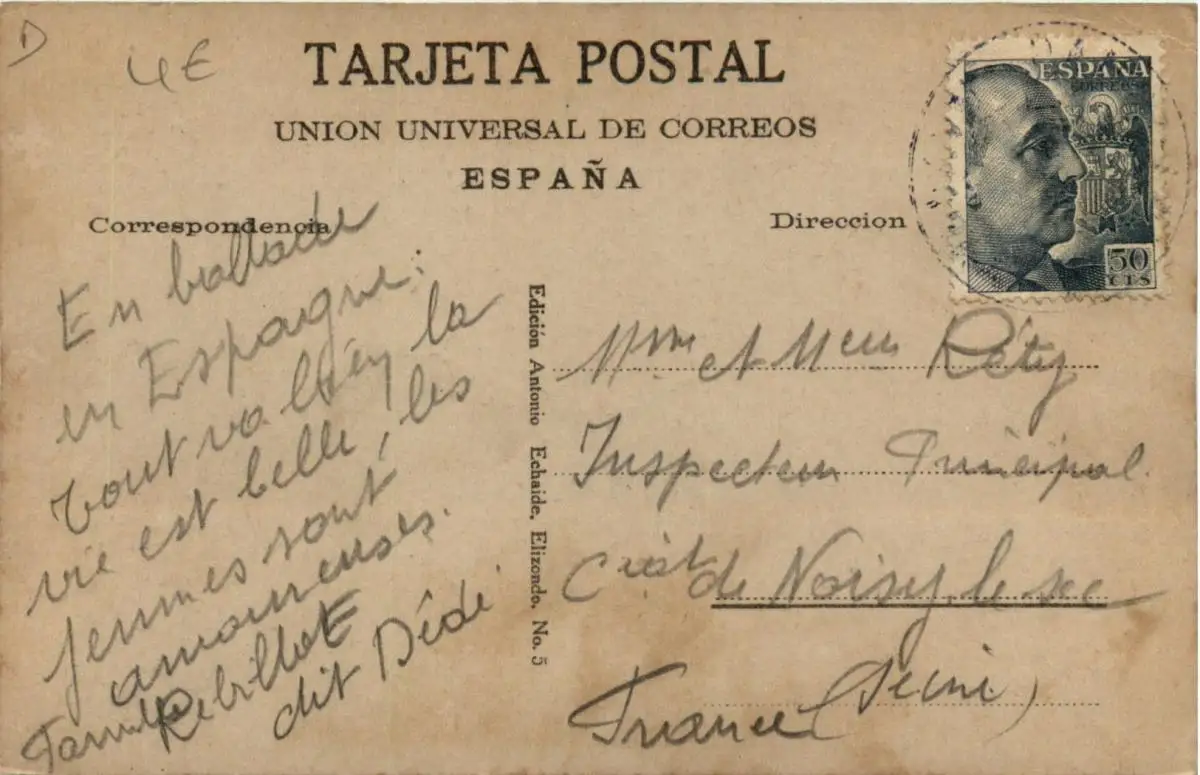 D
4€
TARJETA POSTAL
UNION UNIVERSAL DE CORREOS
ESPAÑA
Correspondencia
Direccion
ESPAÑA
CORREOS
50
CTS
En ballade
en Espagne:
tout va bien la
vie est belle, les
femmes sont
amoureuses.
Famille Rebillot
dit Dédé
Edición Antonio Echaide, Elizondo. No. 5
Mme et Meur Réty
Inspecteur Principal
de Noisy le sec
France (Seine)